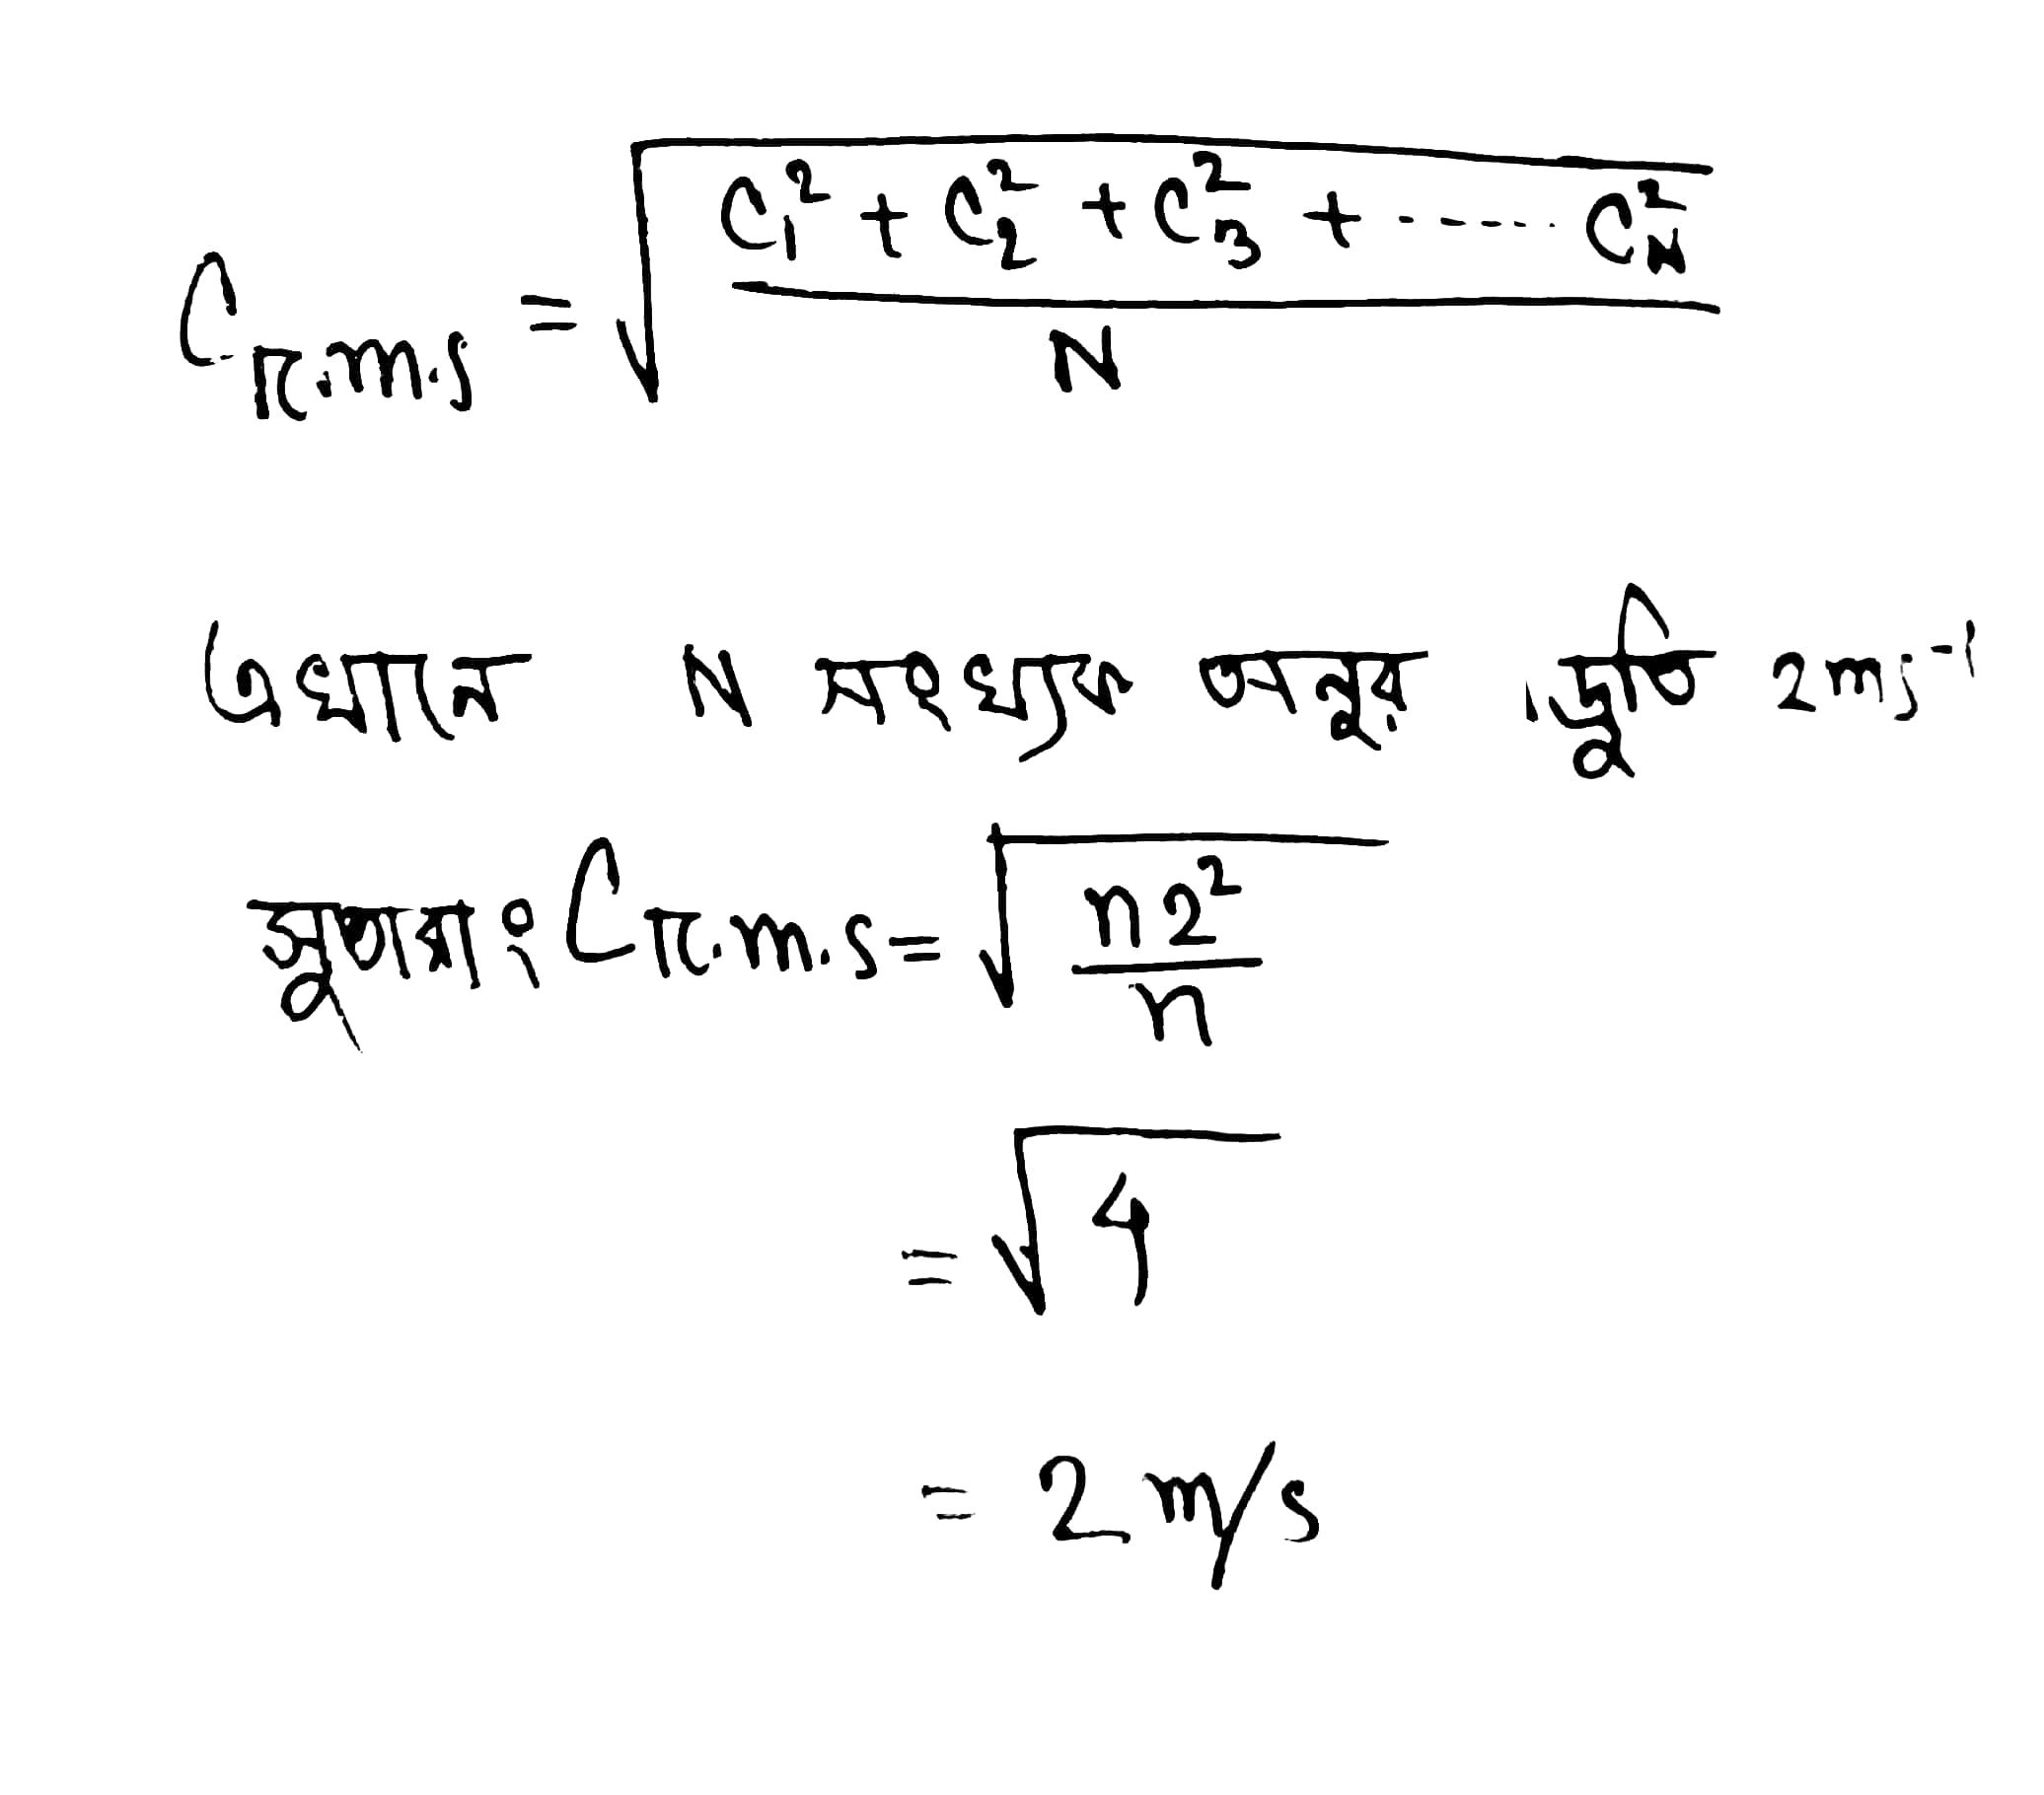 C_{r.m.s} = √((C₁² + C₂² + C₃² + ------- C_N²) / N)
এখানে N সংখ্যক অনুর দ্রুতি 2ms⁻¹
সুতরাং C_{r.m.s} = √(n2² / n)
= √4
= 2 m/s